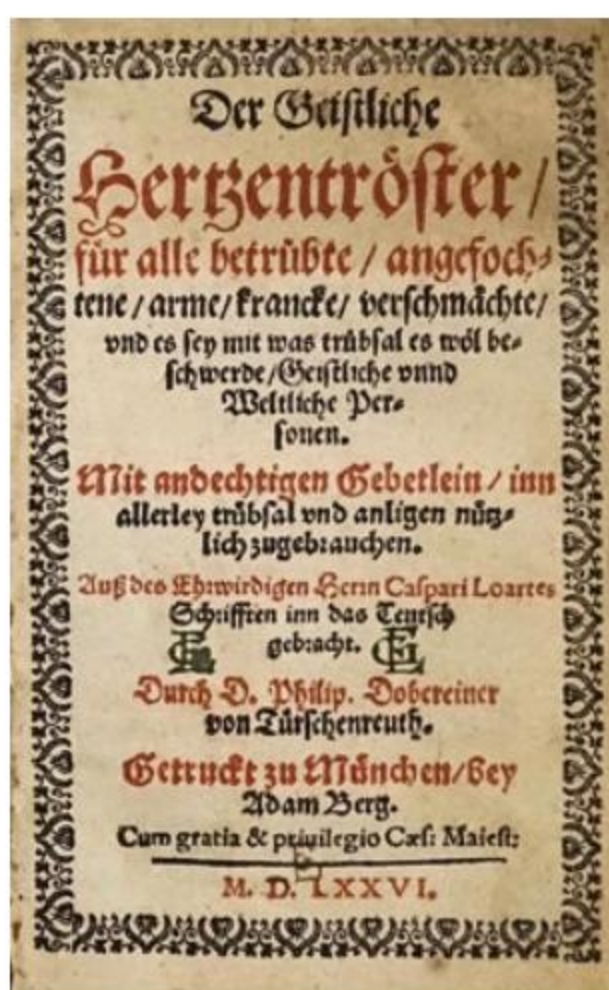 Der Geistliche
Hertzentröster/
für alle betrübte / angefoch⸗
tene / arme / krancke / verschmächte /
vnd es sey mit was trübsal es wöl be⸗
schwerde / Geistliche vnnd
Weltliche Per⸗
sonen.
Mit andechtigen Gebetlein / inn
allerley trübsal vnd anligen nütz⸗
lich zugebrauchen.
Auß des Ehrwirdigen Herrn Caspari Loartes
Schrifften inn das Teutsch
gebracht.
Durch D. Philip. Dobereiner
von Türschenreuth.
Getruckt zu München / bey
Adam Berg.
Cum gratia & priuilegio Cæs: Maiest:
M. D. LXXVI.